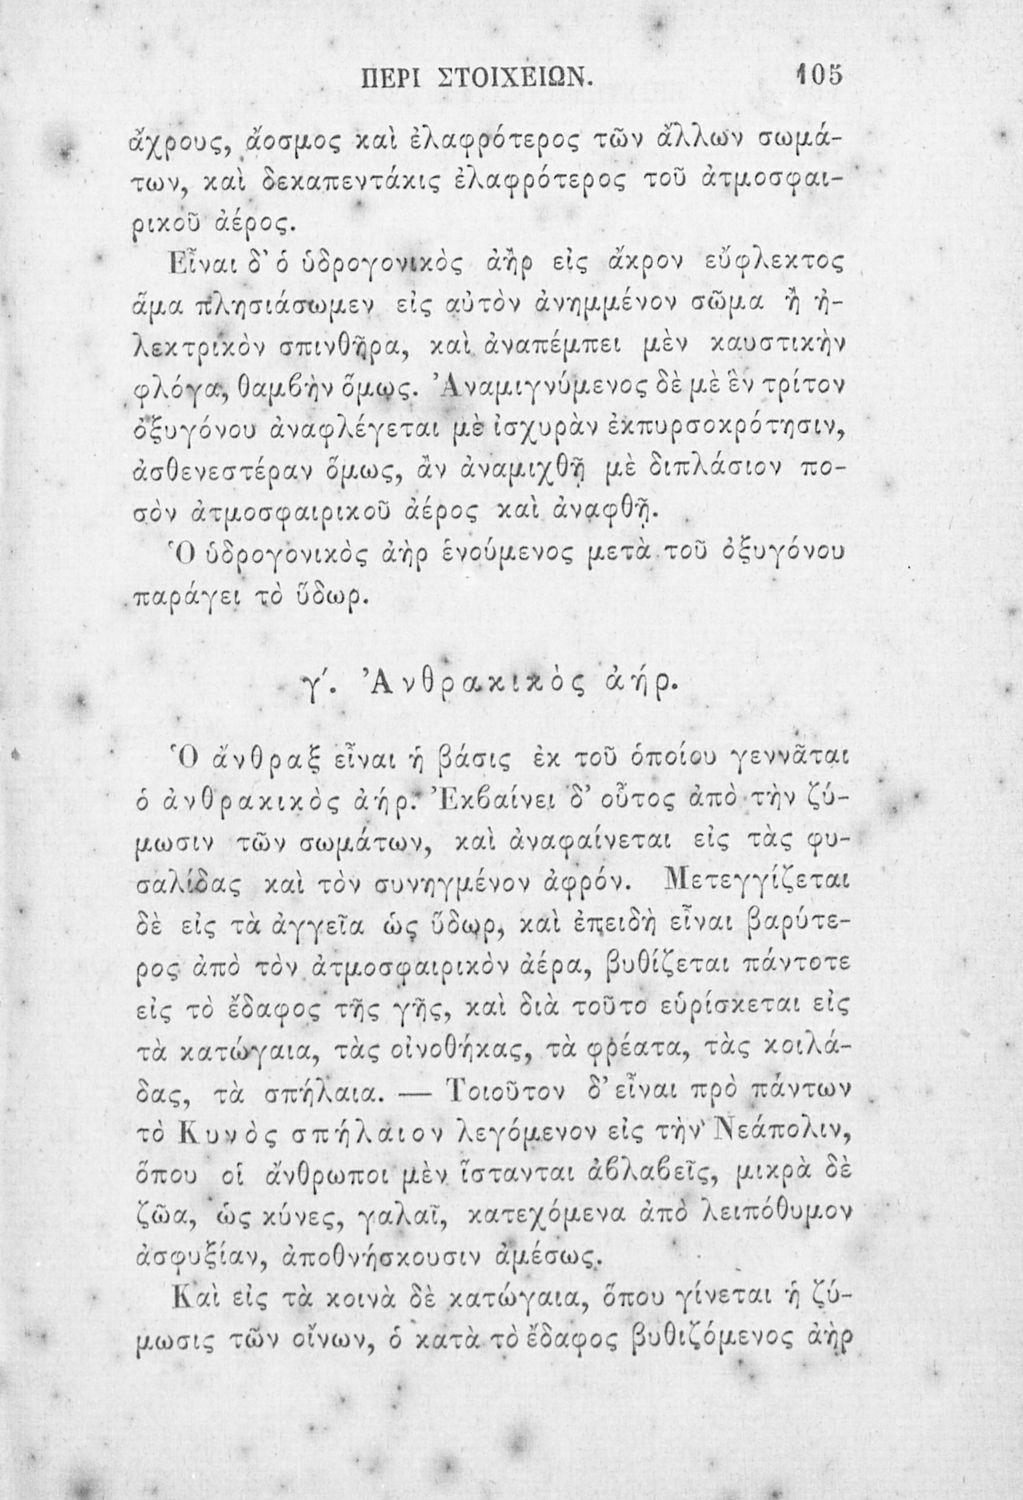 ΠΕΡΙ ΣΤΟΙΧΕΙΩΝ. 105
ἄχρους, ἄοσμος καὶ ἐλαφρότερος τῶν ἄλλων σωμά-
των, καὶ δεκαπεντάκις ἐλαφρότερος τοῦ ἀτμοσφαι-
ρικοῦ ἀέρος.
Εἶναι δ᾽ ὁ ὑδρογονικὸς ἀὴρ εἰς ἄκρον εὔφλεκτος
ἅμα πλησιάσωμεν εἰς αὐτὸν ἀνημμένον σῶμα ἢ ἠ-
λεκτρικὸν σπινθῆρα, καὶ ἀναπέμπει μὲν καυστικὴν
φλόγα, θαμβὴν ὅμως. Ἀναμιγνύμενος δὲ μὲ ἓν τρίτον
ὀξυγόνου ἀναφλέγεται μὲ ἰσχυρὰν ἐκπυρσοκρότησιν,
ἀσθενεστέραν ὅμως, ἂν ἀναμιχθῇ μὲ διπλάσιον πο-
σὸν ἀτμοσφαιρικοῦ ἀέρος καὶ ἀναφθῇ.
Ὁ ὑδρογονικὸς ἀὴρ ἑνούμενος μετὰ τοῦ ὀξυγόνου
παράγει τὸ ὕδωρ.
γ΄. Ἀνθρακικὸς ἀήρ.
Ὁ ἄνθραξ εἶναι ἡ βάσις ἐκ τοῦ ὁποίου γεννᾶται
ὁ ἀνθρακικὸς ἀήρ. Ἐκβαίνει δ᾽ οὗτος ἀπὸ τὴν ζύ-
μωσιν τῶν σωμάτων, καὶ ἀναφαίνεται εἰς τὰς φυ-
σαλίδας καὶ τὸν συνηγμένον ἀφρόν. Μετεγγίζεται
δὲ εἰς τὰ ἀγγεῖα ὡς ὕδωρ, καὶ ἐπειδὴ εἶναι βαρύτε-
ρος ἀπὸ τὸν ἀτμοσφαιρικὸν ἀέρα, βυθίζεται πάντοτε
εἰς τὸ ἔδαφος τῆς γῆς, καὶ διὰ τοῦτο εὑρίσκεται εἰς
τὰ κατώγαια, τὰς οἰνοθήκας, τὰ φρέατα, τὰς κοιλά-
δας, τὰ σπήλαια. — Τοιοῦτον δ᾽ εἶναι πρὸ πάντων
τὸ Κυνὸς σπήλαιον λεγόμενον εἰς τὴν Νεάπολιν,
ὅπου οἱ ἄνθρωποι μὲν ἵστανται ἀβλαβεῖς, μικρὰ δὲ
ζῶα, ὡς κύνες, γαλαῖ, κατεχόμενα ἀπὸ λειπόθυμον
ἀσφυξίαν, ἀποθνήσκουσιν ἀμέσως.
Καὶ εἰς τὰ κοινὰ δὲ κατώγαια, ὅπου γίνεται ἡ ζύ-
μωσις τῶν οἴνων, ὁ κατὰ τὸ ἔδαφος βυθιζόμενος ἀὴρ